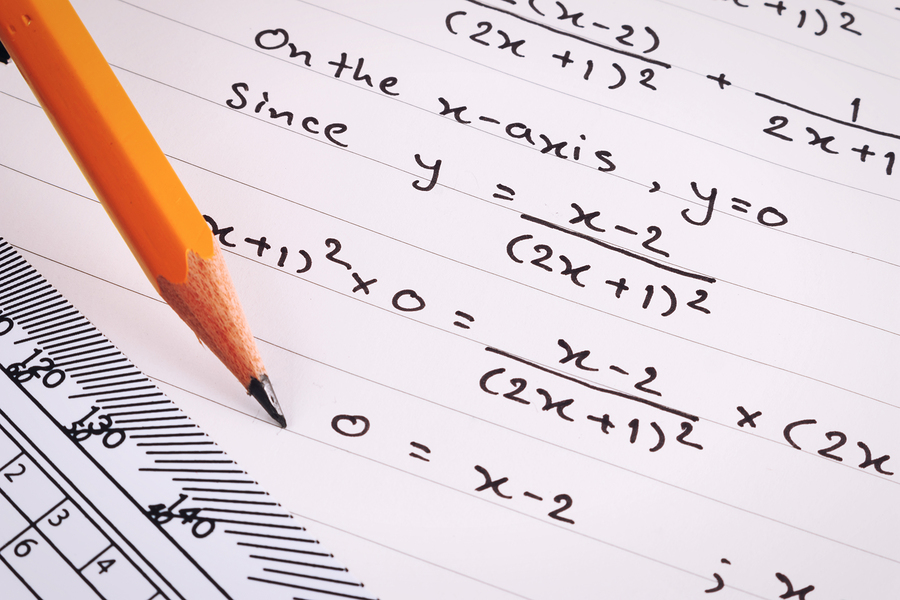 (x-2)
(2x+1)² + 1
2x+1
x+1)²
On the x-axis, y=0
since y = x-2
(2x+1)²
x+1)² × 0 = x-2
(2x+1)² × (2x
0 = x-2
; x
120
60
130
50
140
40
2
3
4
6